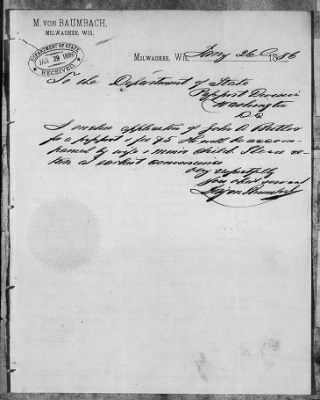 M. VON BAUMBACH,
MILWAUKEE, WIS.
DEPARTMENT OF STATE
JAN 29
RECEIVED.
MILWAUKEE, WIS. Jany 26 1886
To the Department of State
Washington
D. C.
I enclose application of John A. Butler
for a passport - for $5. He will be accom-
panied by wife & minor child. Please re-
turn at earliest convenience
Very respectfully
Your obt servant